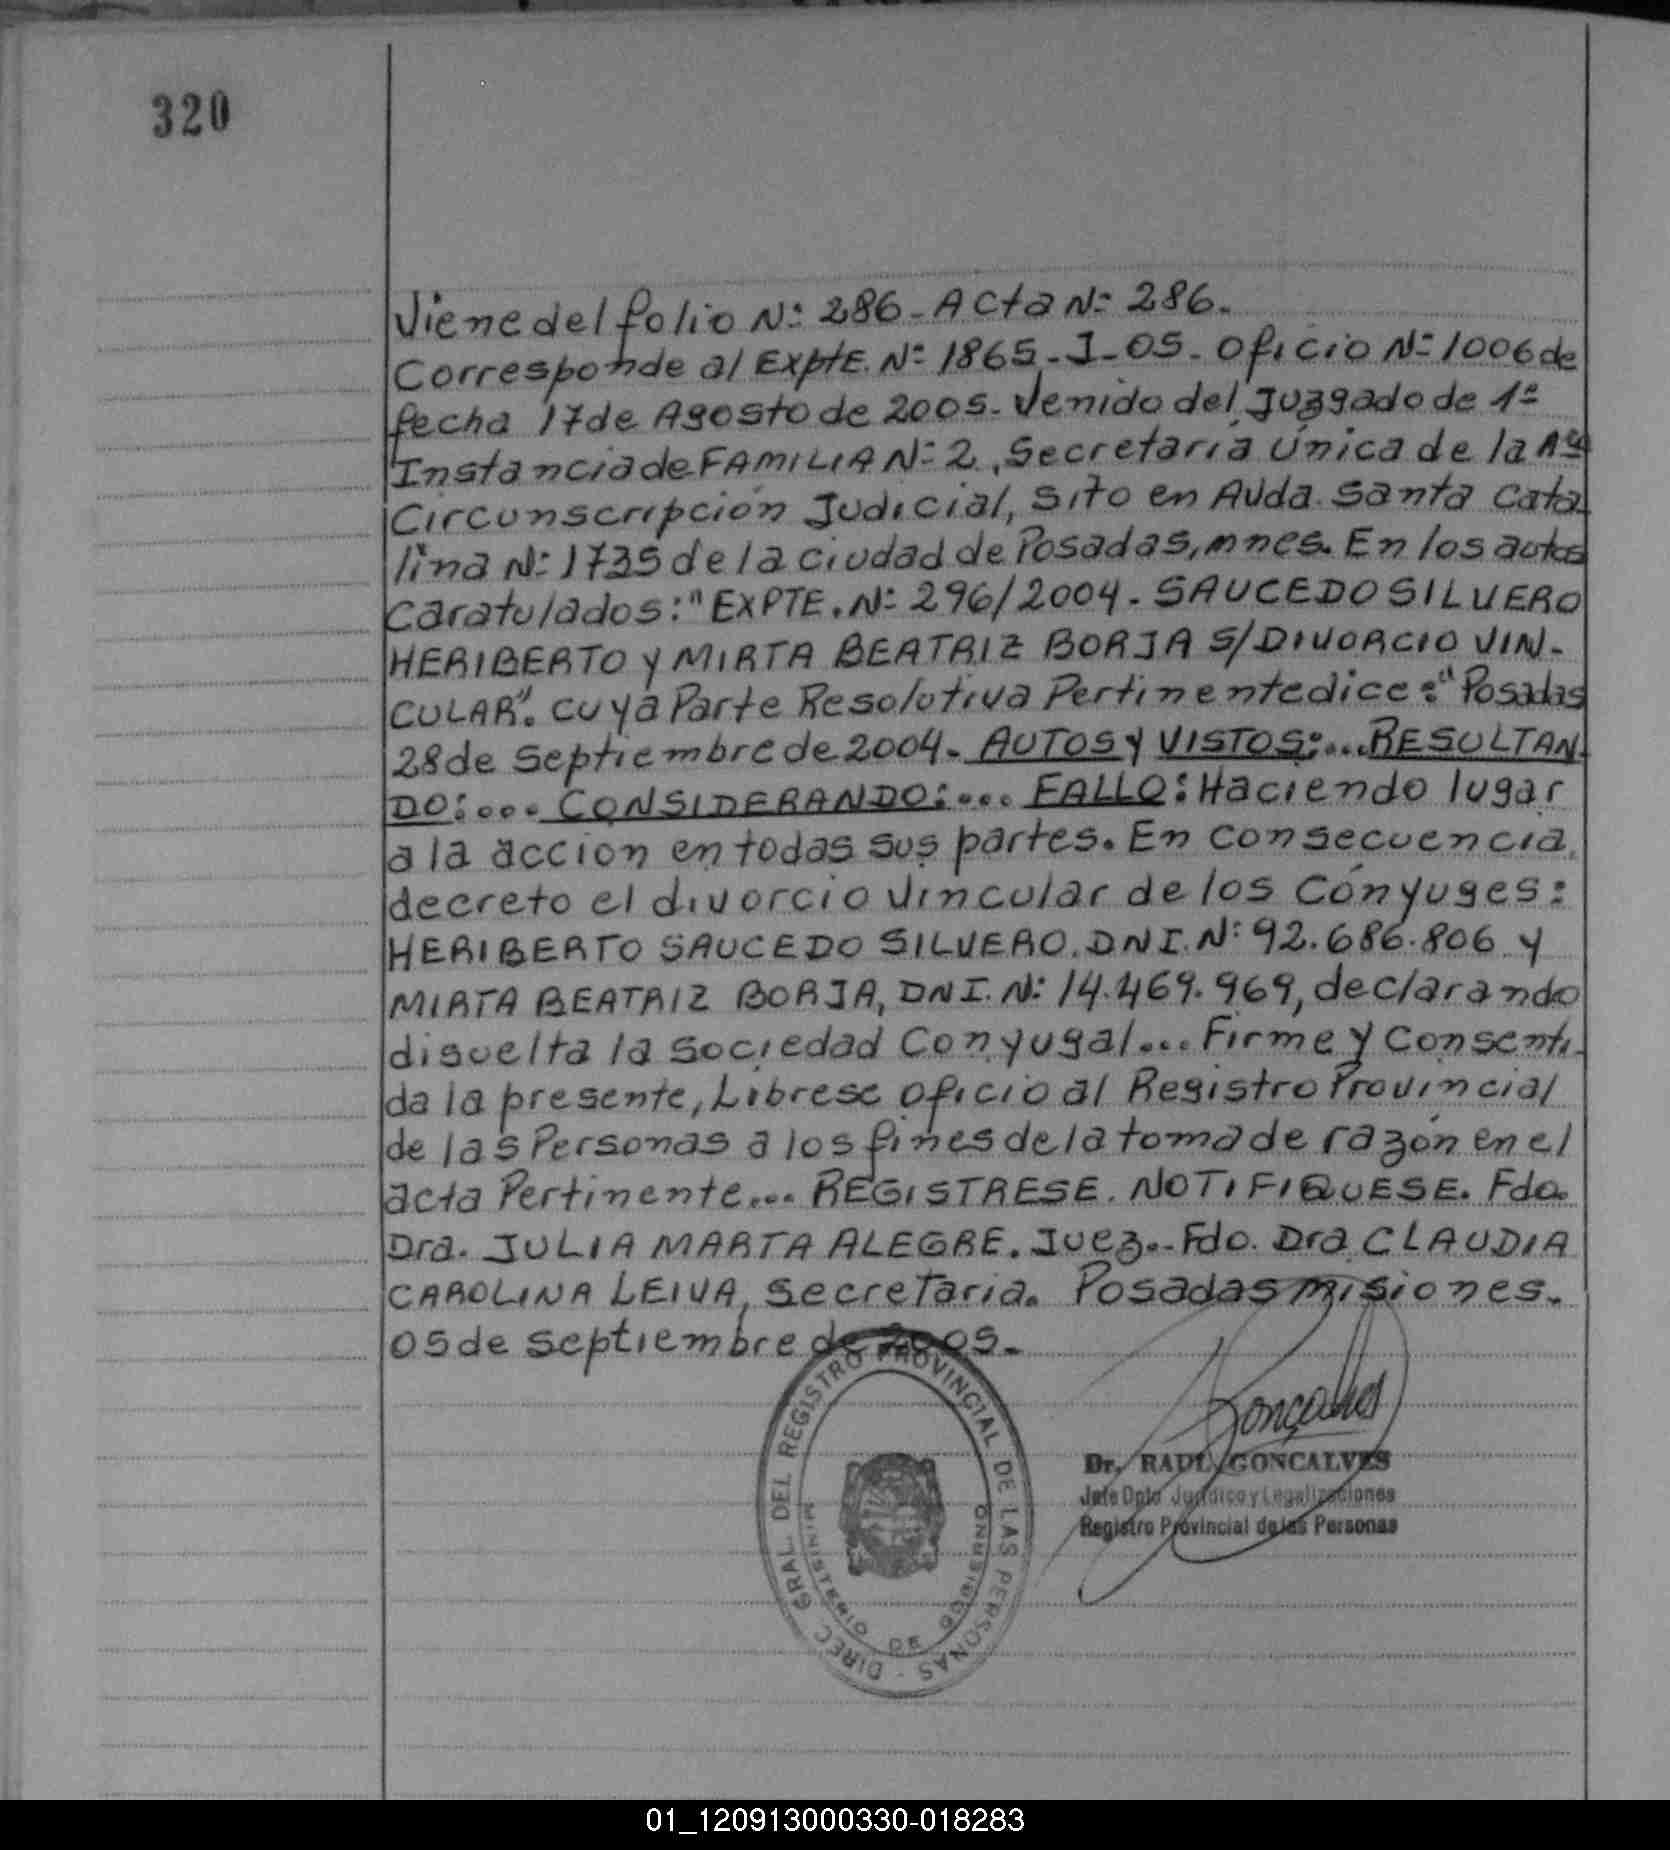 320
Viene del folio Nº 286 - Acta Nº 286.
Corresponde al Expte. Nº 1865-J-05- oficio Nº 1006 de
fecha 17 de Agosto de 2005- Venido del Juzgado de 1ª
Instancia de FAMILIA Nº 2, Secretaría Única de la
Circunscripción Judicial, sito en Avda. Santa Cata
lina Nº 1735 de la ciudad de Posadas, mnes. En los autos
Caratulados: "EXPTE. Nº 296/2004- SAUCEDO SILVERO
HERIBERTO y MIRTA BEATRIZ BORJA S/DIVORCIO VIN-
CULAR". cuya Parte Resolutiva Pertinente dice: "Posadas
28 de Septiembre de 2004- AUTOS y VISTOS:... RESULTAN-
DO:... CONSIDERANDO:... FALLO: Haciendo lugar
a la accion en todas sus partes. En consecuencia,
decreto el divorcio vincular de los Cónyuges:
HERIBERTO SAUCEDO SILVERO. DNI. Nº 92.686.806 y
MIRTA BEATRIZ BORJA, DNI. Nº 14.469.969, declarando
disuelta la sociedad Conyugal... Firme y Consenti-
da la presente, Líbrese oficio al Registro Provincial
de las Personas a los fines de la toma de razón en el
acta Pertinente... REGISTRESE. NOTIFIQUESE. Fdo.
Dra. JULIA MARTA ALEGRE. Juez.- Fdo. Dra CLAUDIA
CAROLINA LEIVA, Secretaria. Posadas misiones.
05 de Septiembre de 2005.-
DIREC GRAL. DEL REGISTRO PROVINCIAL DE LAS PERSONAS -
MINISTERIO DE GOBIERNO
Goncalves
Dr. RAUL GONCALVES
Jefe Dpto Jurídico y Legalizaciones
Registro Provincial de las Personas
01_120913000330-018283